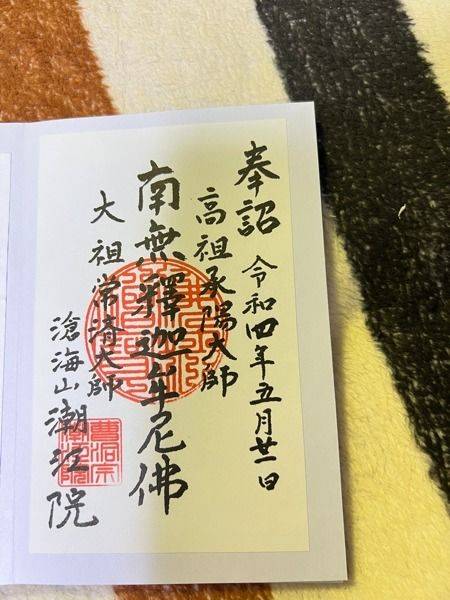 奉詔 令和四年五月廿一日
高祖承陽大師
南無釋迦牟尼佛
大祖常済大師
滄海山潮江院
曹洞宗
潮江院